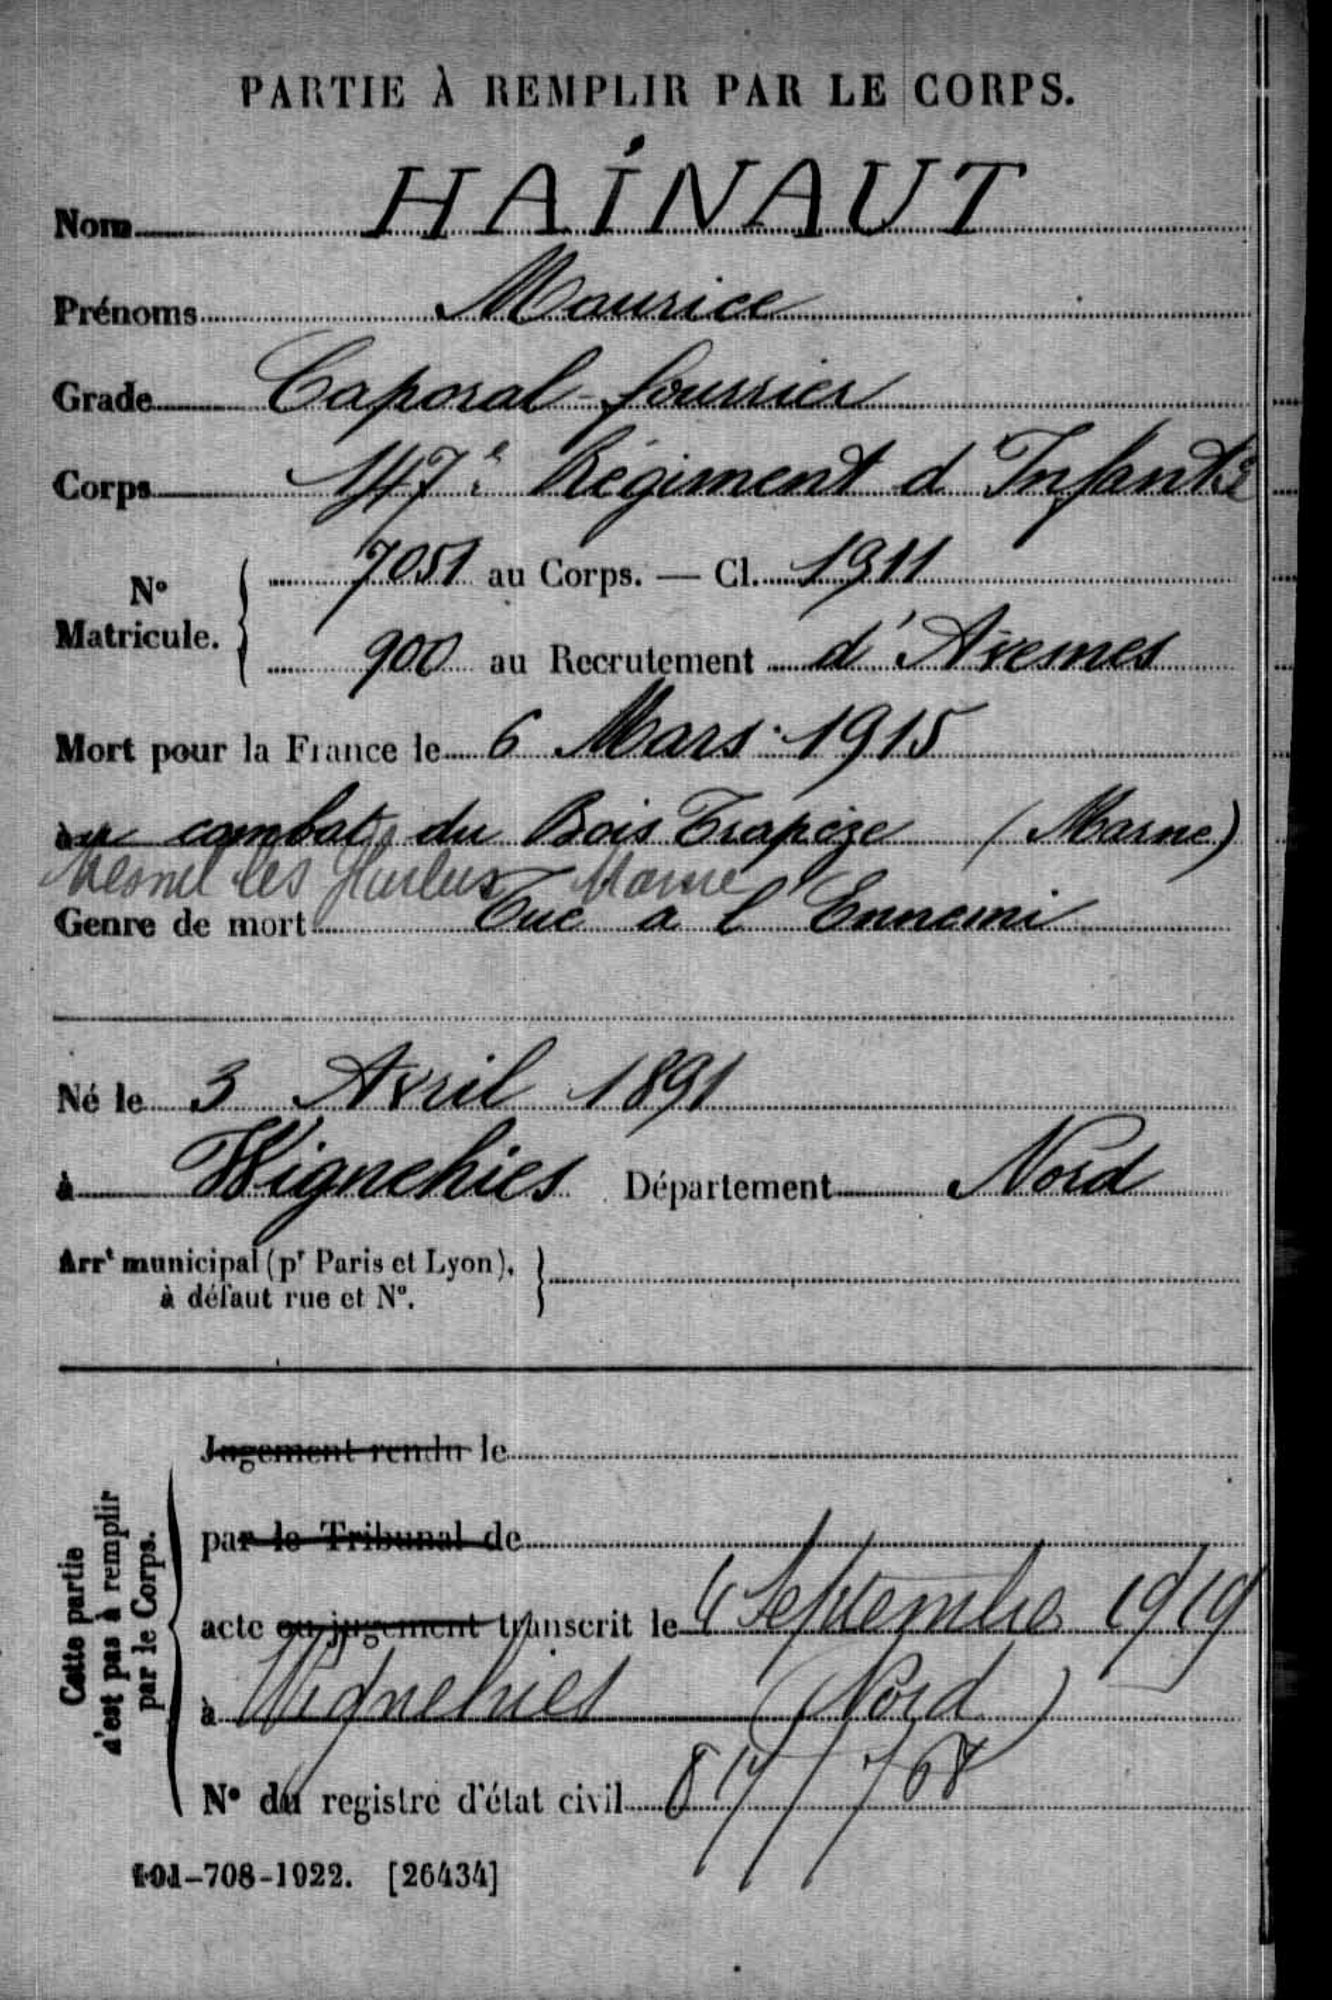 PARTIE À REMPLIR PAR LE CORPS.
Nom HAINAUT
Prénoms Maurice
Grade Caporal-fourrier
Corps 147e Régiment d'Infantie
No Matricule. 7051 au Corps. — Cl. 1911
900 au Recrutement d'Avesnes
Mort pour la France le 6 Mars 1915
au combat du Bois Trapèze (Marne)
Mesnil les Hurlus Marne
Genre de mort Tué a l'Ennemi
Né le 3 Avril 1891
à Wignehies Département Nord
Arrt municipal (pr Paris et Lyon),
à défaut rue et No.
Cette partie
n'est pas à remplir
par le Corps.
Jugement rendu le
par le Tribunal de
acte ou jugement transcrit le 4 Septembre 1919
à Wignehies (Nord)
No du registre d'état civil
101-708-1922. [26434]